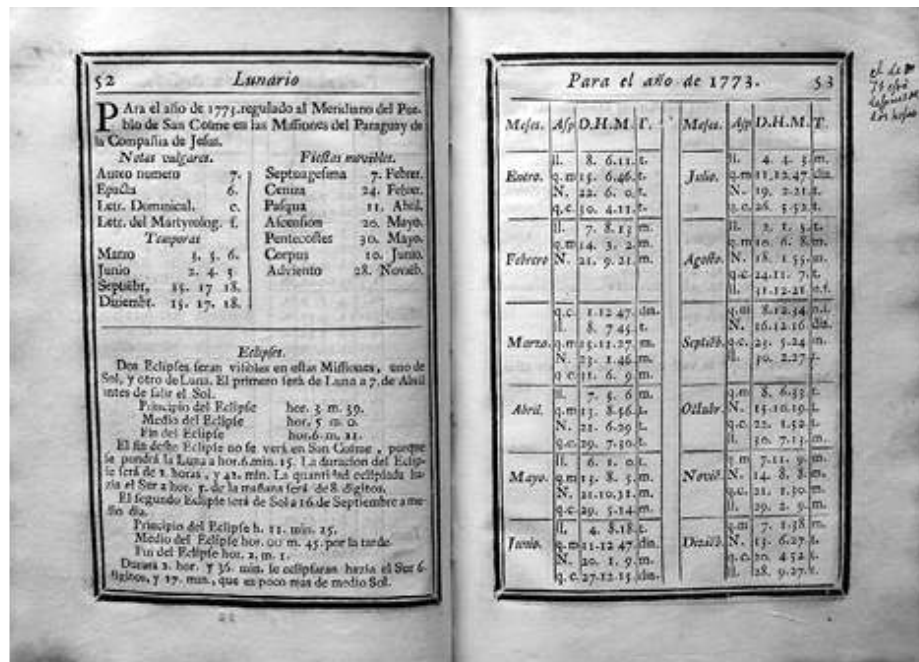 52 Lunario
PAra el año de 1773. regulado al Meridiano del Pue-
blo de San Cosme en las Missiones del Paraguay de
la Compañia de Jesus.
Notas vulgares.
Aureo numero 7.
Epacta 6.
Letr. Dominical. c.
Letr. del Martyrolog. f.
Temporas
Marzo 3. 5. 6.
Junio 2. 4. 5.
Septiébr. 15. 17 18.
Diziembr. 15. 17. 18.
Fiestas movibles.
Septuagesima 7. Febrer.
Ceniza 24. Febrer.
Pasqua 11. Abril.
Ascension 20. Mayo.
Pentecostes 30. Mayo.
Corpus 10. Junio.
Adviento 28. Noviéb.
Eclipses.
Dos Eclipses seran visibles en estas Missiones, uno de
Sol, y otro de Luna. El primero será de Luna a 7. de Abril
antes de salir el Sol.
Principio del Eclipse hor. 3. m. 39.
Medio del Eclipse hor. 5 m. 0.
Fin del Eclipse hor. 6. m. 21.
El fin deste Eclipse no se verá en San Cosme, porque
se pondrá la Luna a hor. 6. min. 15. La duracion del Eclip-
se será de 2. horas, y 42. min. La quantidad eclipsada ha-
zia el Sur a hor. 5. de la mañana será de 8. digitos.
El segundo Eclipse será de Sol a 16. de Septiembre a me-
dio dia.
Principio del Eclipse h. 11. min. 25.
Medio del Eclipse hor. 00 m. 45. por la tarde.
Fin del Eclipse hor. 2. m. 1.
Durará 2. hor. y 36. min. se eclipsaran hazia el Sur 6.
digitos, y 17. min., que es poco mas de medio Sol.
Para el año de 1773. 53
Meses. Asp D. H. M. T.
ll. 8. 6.11. t.
Enero. q.m 15. 6.46. t.
N. 22. 6. 0. t.
q.c. 30. 4.11. t.
ll. 7. 8.13 m.
q.m 14. 3. 2. m.
Febrero N. 21. 9.21 m.
q.c. 1.12 47. dia.
ll. 8. 7 45. t.
Marzo. q.m 15.11.27. m.
N. 23. 1.46. m.
q c. 31. 6. 9 m.
ll. 7. 5. 6 m.
Abril. q.m 13. 8.56. t.
N. 21. 6.29 t.
q.c. 29. 7.30. t.
ll. 6. 1. 0. t.
Mayo. q.m 13. 8. 5. m.
N. 21.10.31. m.
q.c. 29. 5.14. m.
ll. 4. 8.18. t.
Junio. q.m 11.12 47. dia.
N. 20. 1. 9. m.
q.c. 27.12.15. dia.
Meses. Asp D. H. M. T.
ll. 4. 4. 5 m.
Julio. q.m 11.12.47. dia.
N. 19. 2.21. t.
q.c. 26. 5.52. t.
ll. 2. 1. 5. t.
q.m 10. 6. 8. m.
Agosto. N. 18. 1 55. m.
q.c. 24.11. 7. t.
ll. 31.12.21 n.t.
q.m 8.12.34. n.t.
N. 16.12 16 dia.
Septiéb. q.c. 23. 5.24 m.
ll. 30. 2.27 t.
q.m 8. 6.53. t.
Octubr. N. 15.10.19. t.
q.c. 22. 1.52. t.
ll. 30. 7.13. m.
q m 7.11. 9. m.
Noviéb. N. 14. 8. 8. m.
q.c. 21. 1.30. m.
ll. 29. 2. 9. m.
q.m 7. 1.38 m.
Diziéb. N. 13. 6.27. t.
q.c. 20. 4 52. t.
ll. 28. 9.27. t.
el de